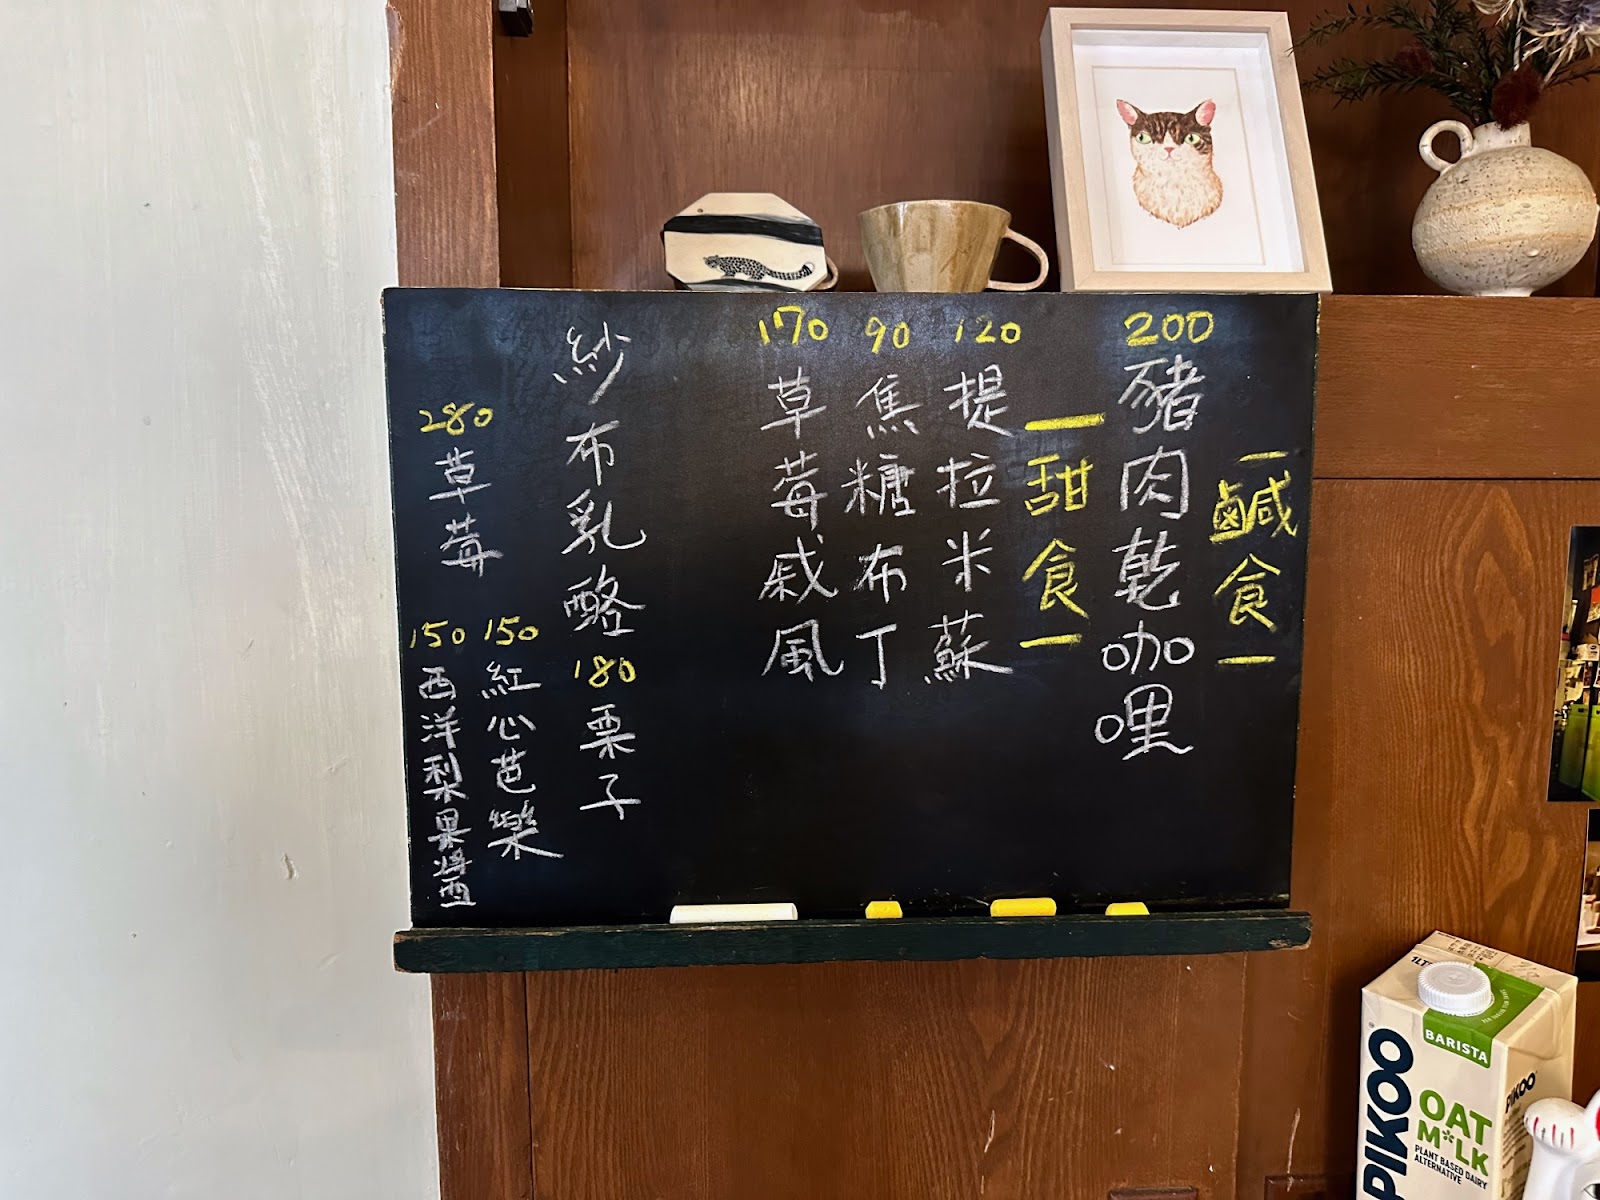 －鹹食－
200
豬肉乾咖哩
－甜食－
120
提拉米蘇
90
焦糖布丁
170
草莓戚風
紗布乳酪
180
栗子
150
紅心芭樂
280
草莓
150
西洋梨果醬
1LT
BARISTA
PIKOO
OAT
M*LK
PLANT BASED DAIRY
ALTERNATIVE
PIKOO